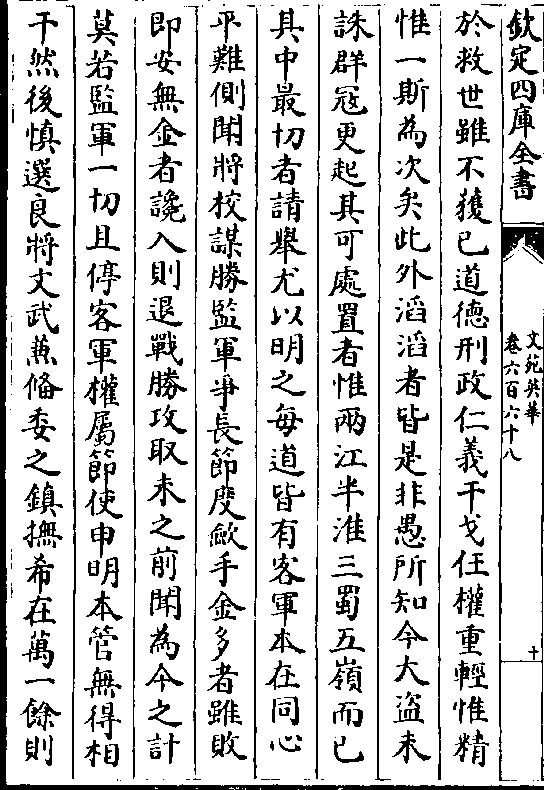 欽定四庫全書
文苑英華
卷六百六十八
十
於救世雖不獲已道德刑政仁義干戈任權重輕惟精
惟一斯為次矣此外滔滔者皆是非愚所知今大盜未
誅群冦更起其可處置者惟兩江半淮三蜀五嶺而已
其中最切者請舉尤以明之每道皆有客軍本在同心
平難側聞將校謀勝監軍爭長節度斂手金多者雖敗
即安無金者讒入則退戰勝攻取未之前聞為今之計
莫若監軍一切且停客軍權屬節使申明本管無得相
干然後慎選良將文武蕪備委之鎮撫希在萬一餘則